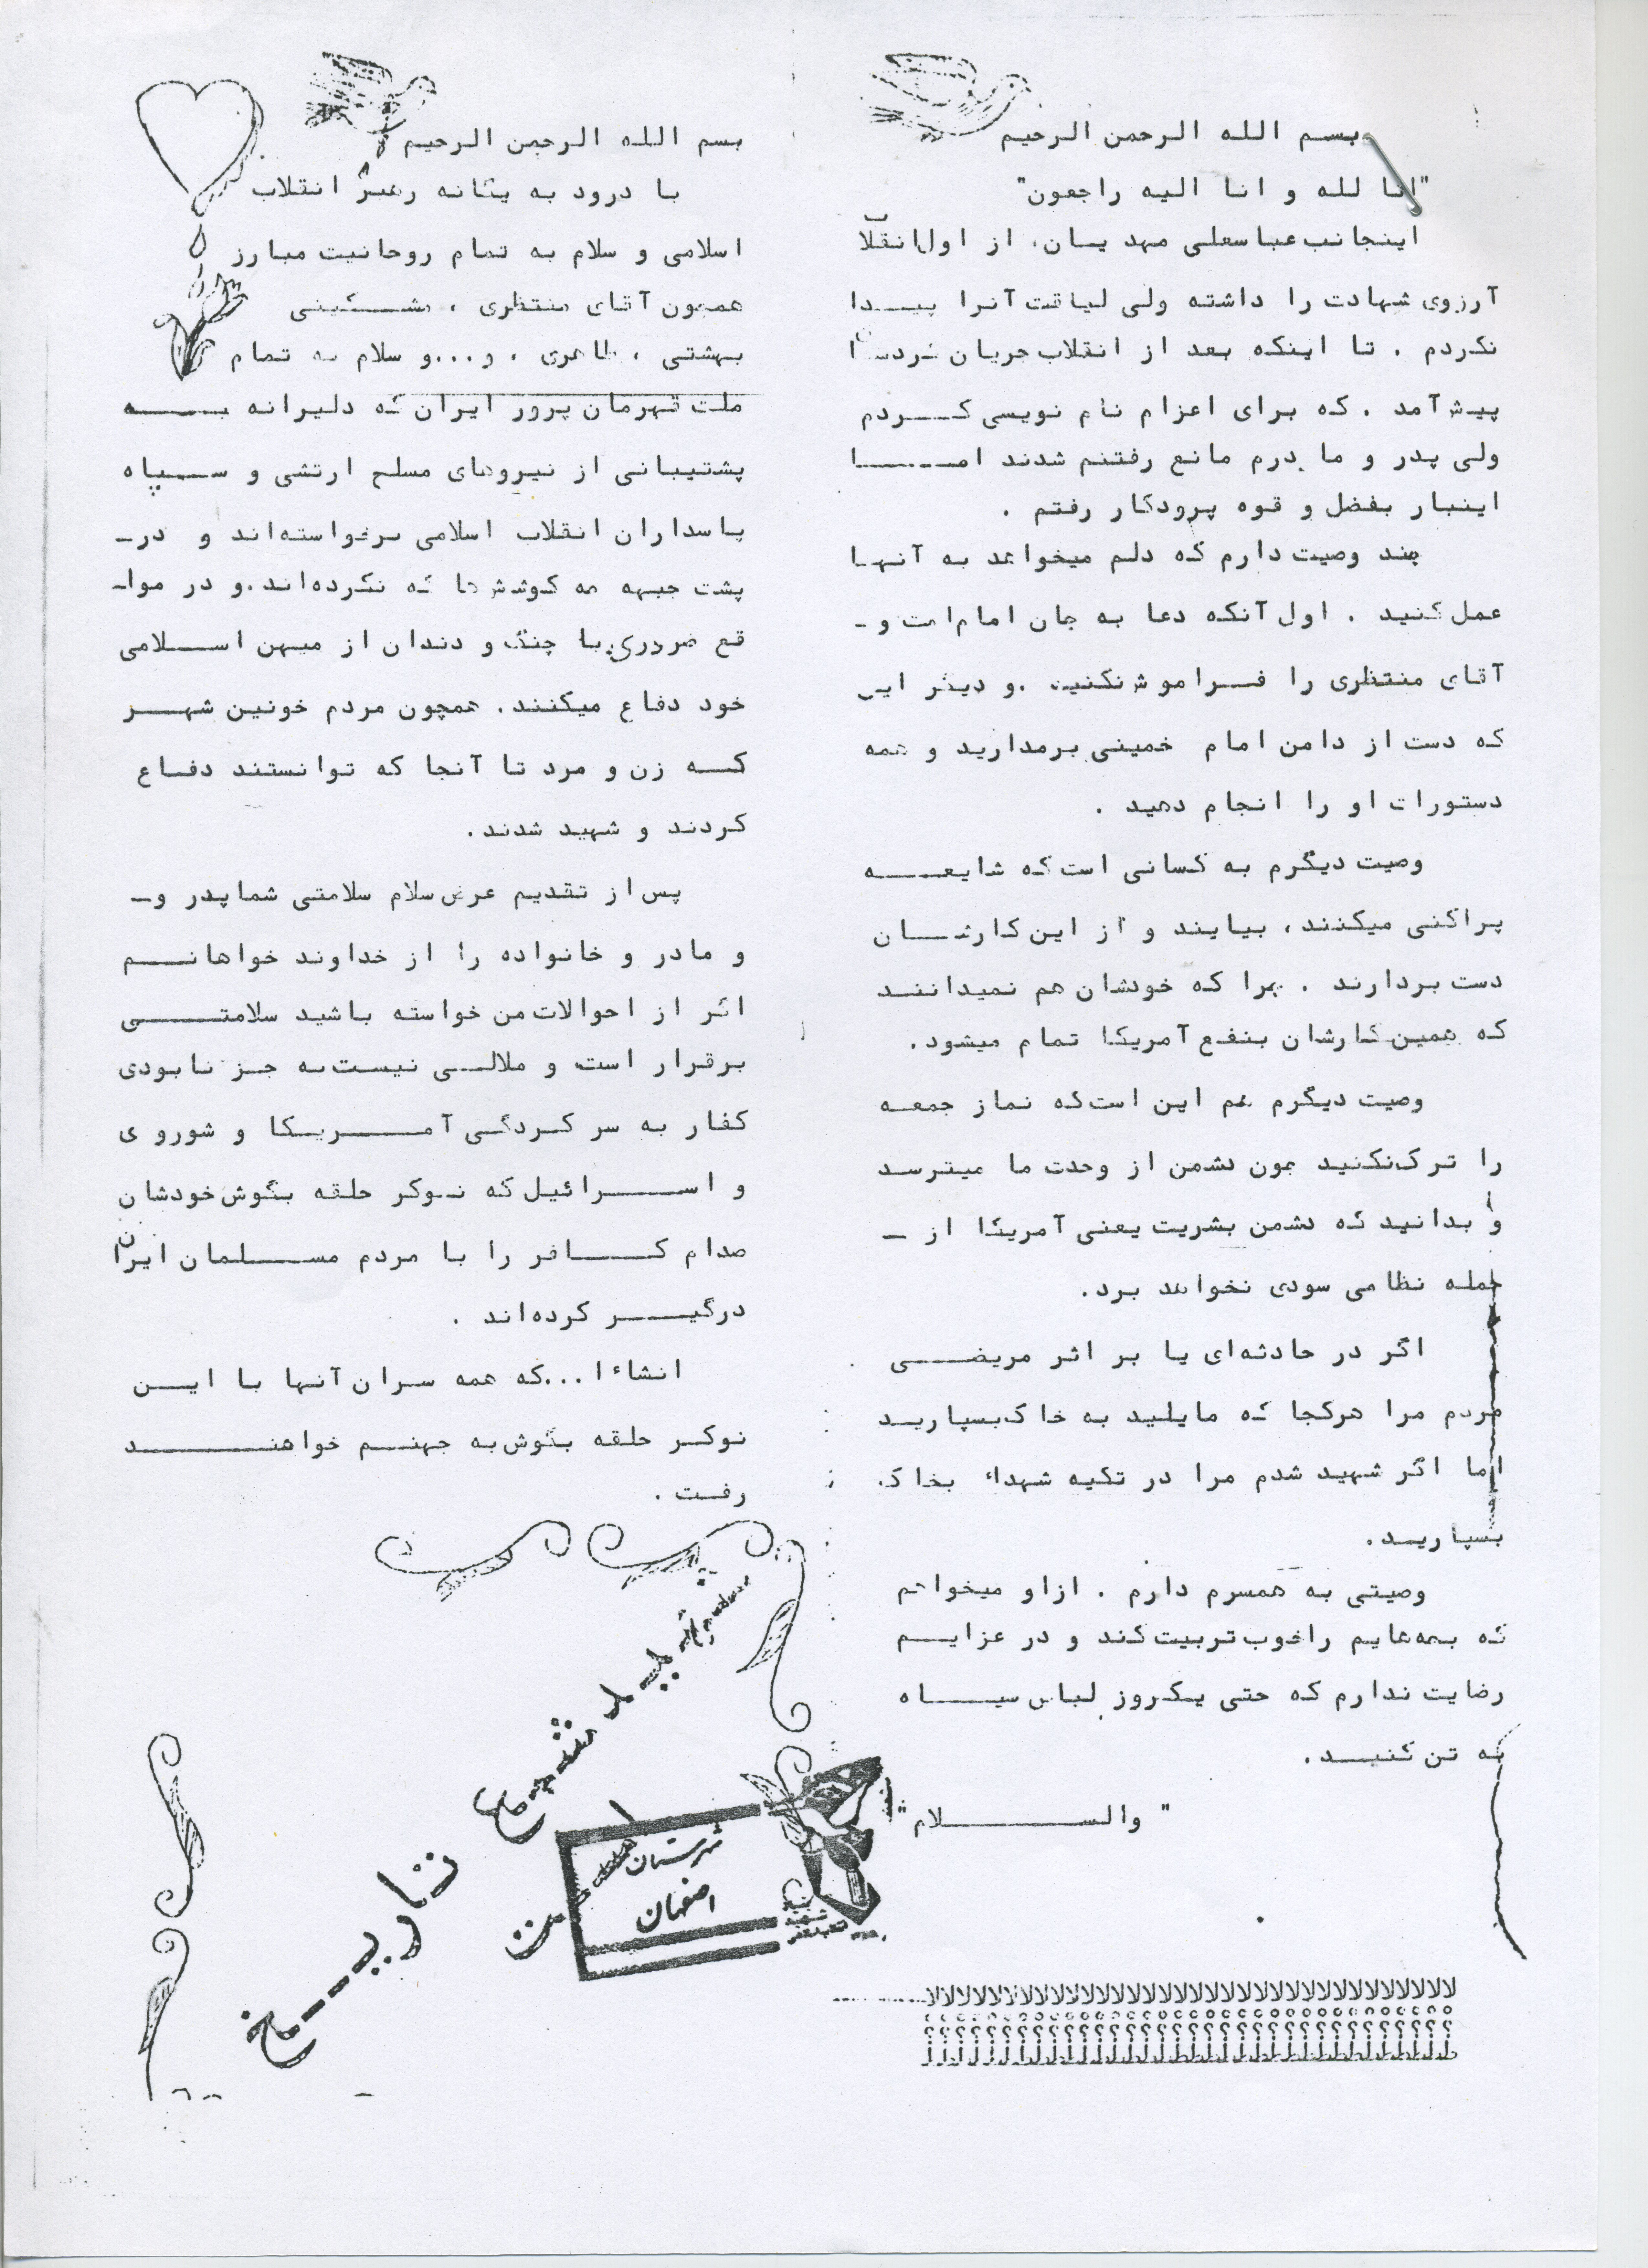 بسم الله الرحمن الرحیم
"انا لله و انا الیه راجعون"
اینجانب عباسعلی مهدیان، از اول انقلاب
آرزوی شهادت را داشته ولی لیاقت آنرا پیدا
نکردم . تا اینکه بعد از انقلاب جریان کردستان
پیش آمد . که برای اعزام نام نویسی کردم
ولی پدر و مادرم مانع رفتنم شدند اما
اینبار بفضل و قوه پرودگار رفتم .
چند وصیت دارم که دلم میخواهد به آنها
عمل کنید . اول آنکه دعا به جان امام امت و -
آقای منتظری را فراموش نکنید .و دیگر این
که دست از دامن امام خمینی برمدارید و همه
دستورات او را انجام دهید .
وصیت دیگرم به کسانی است که شایعه
پراکنی میکنند، بیایند و از این کارشان
دست بردارند . چرا که خودشان هم نمیدانند
که همین کارشان بنفع آمریکا تمام میشود.
وصیت دیگرم هم این است که نماز جمعه
را ترک نکنید چون دشمن از وحدت ما میترسد
و بدانید که دشمن بشریت یعنی آمریکا از -
حمله نظامی سودی نخواهد برد.
اگر در حادثه‌ای یا بر اثر مریضی
مردم مرا هرکجا که مایلید به خاک بسپارید
اما اگر شهید شدم مرا در تکیه شهداء بخاک
بسپارید.
وصیتی به همسرم دارم . ازاو میخواهم
که بچه‌هایم را خوب تربیت کند و در عزایم
رضایت ندارم که حتی یکروز لباس سیاه
به تن کنید.
" والسلام"
بسم الله الرحمن الرحیم
با درود به یگانه رهبر انقلاب
اسلامی و سلام به تمام روحانیت مبارز
همچون آقای منتظری ، مشکینی
بهشتی ، طاهری ، و...و سلام به تمام
ملت قهرمان پرور ایران که دلیرانه به
پشتیبانی از نیروهای مسلح ارتشی و سپاه
پاسداران انقلاب اسلامی برخواسته‌اند و در-
پشت جبهه چه کوشش‌ها که نکرده‌اند.و در موا-
قع ضروری با چنگ و دندان از میهن اسلامی
خود دفاع میکنند. همچون مردم خونین شهر
که زن و مرد تا آنجا که توانستند دفاع
کردند و شهید شدند.
پس از تقدیم عرض سلام سلامتی شما پدر و-
و مادر و خانواده را از خداوند خواهانم
اگر از احوالات من خواسته باشید سلامتی
برقرار است و ملالی نیست به جز نابودی
کفار به سر کردگی آمریکا و شوروی
و اسرائیل که نوکر حلقه بگوش خودشان
صدام کافر را با مردم مسلمان ایران
درگیر کرده‌اند .
انشاءا...که همه سران آنها با این
نوکر حلقه بگوش به جهنم خواهند
رفت .
شهید شمع تاریخ است
شهرستان
اصفهان
بنیاد
شهید